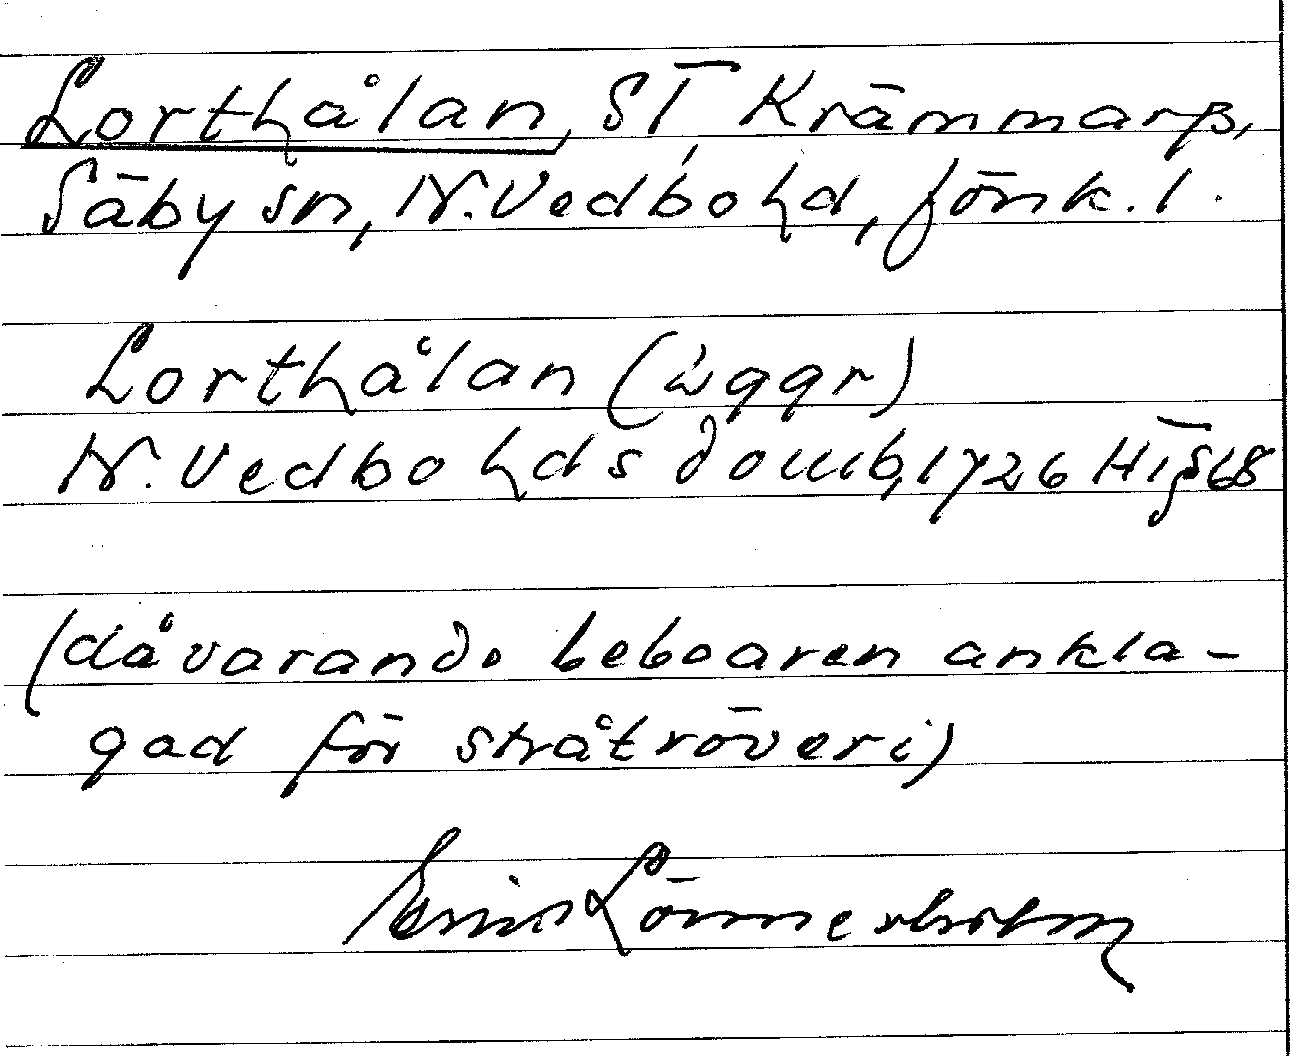 Lorthålan, ST Krämmarp,
Säby sn, N. Vedbo hd, Jönk. l.
Lorthålan (2 ggr)
N. Vedbo hds domb, 1726 HT § 68
(dåvarande beboaren ankla-
gad för stråtröveri)
Erik Lönnerholm